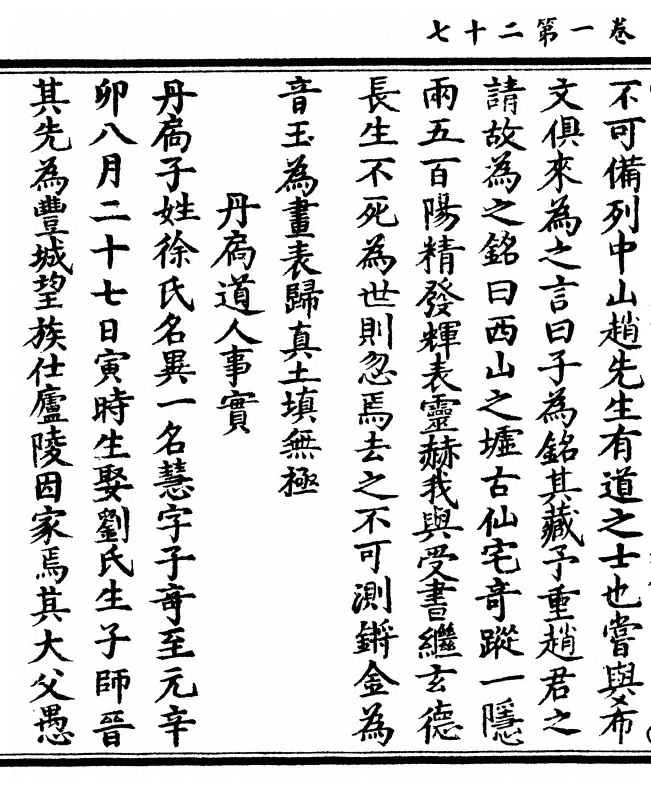 卷一第二十七
不可備列中山趙先生有道之士也嘗與希
文俱來為之言曰子為銘其藏予重趙君之
請故為之銘曰西山之墟古仙宅竒蹤一隱
兩五百陽精發輝表靈赫我與受書繼玄德
長生不死為世則忽焉去之不可測鏘金為
音玉為畫表歸真土填無極
丹扃道人事實
丹扃子姓徐氏名異一名慧字子竒至元辛
卯八月二十七日寅時生娶劉氏生子師晉
其先為豐城望族仕廬陵因家焉其大父愚